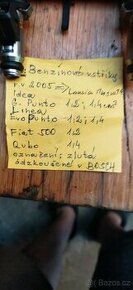 Benzínové vstřiky
r.v 2005 => Lancia Musa 1,4
Idea
G. Punto 1,2; 1,4
Linea
Evo Punto 1,2; 1,4
Fiat 500 1,2
Qubo 1,4
označení; žlutá
odzkoušené v BOSCH